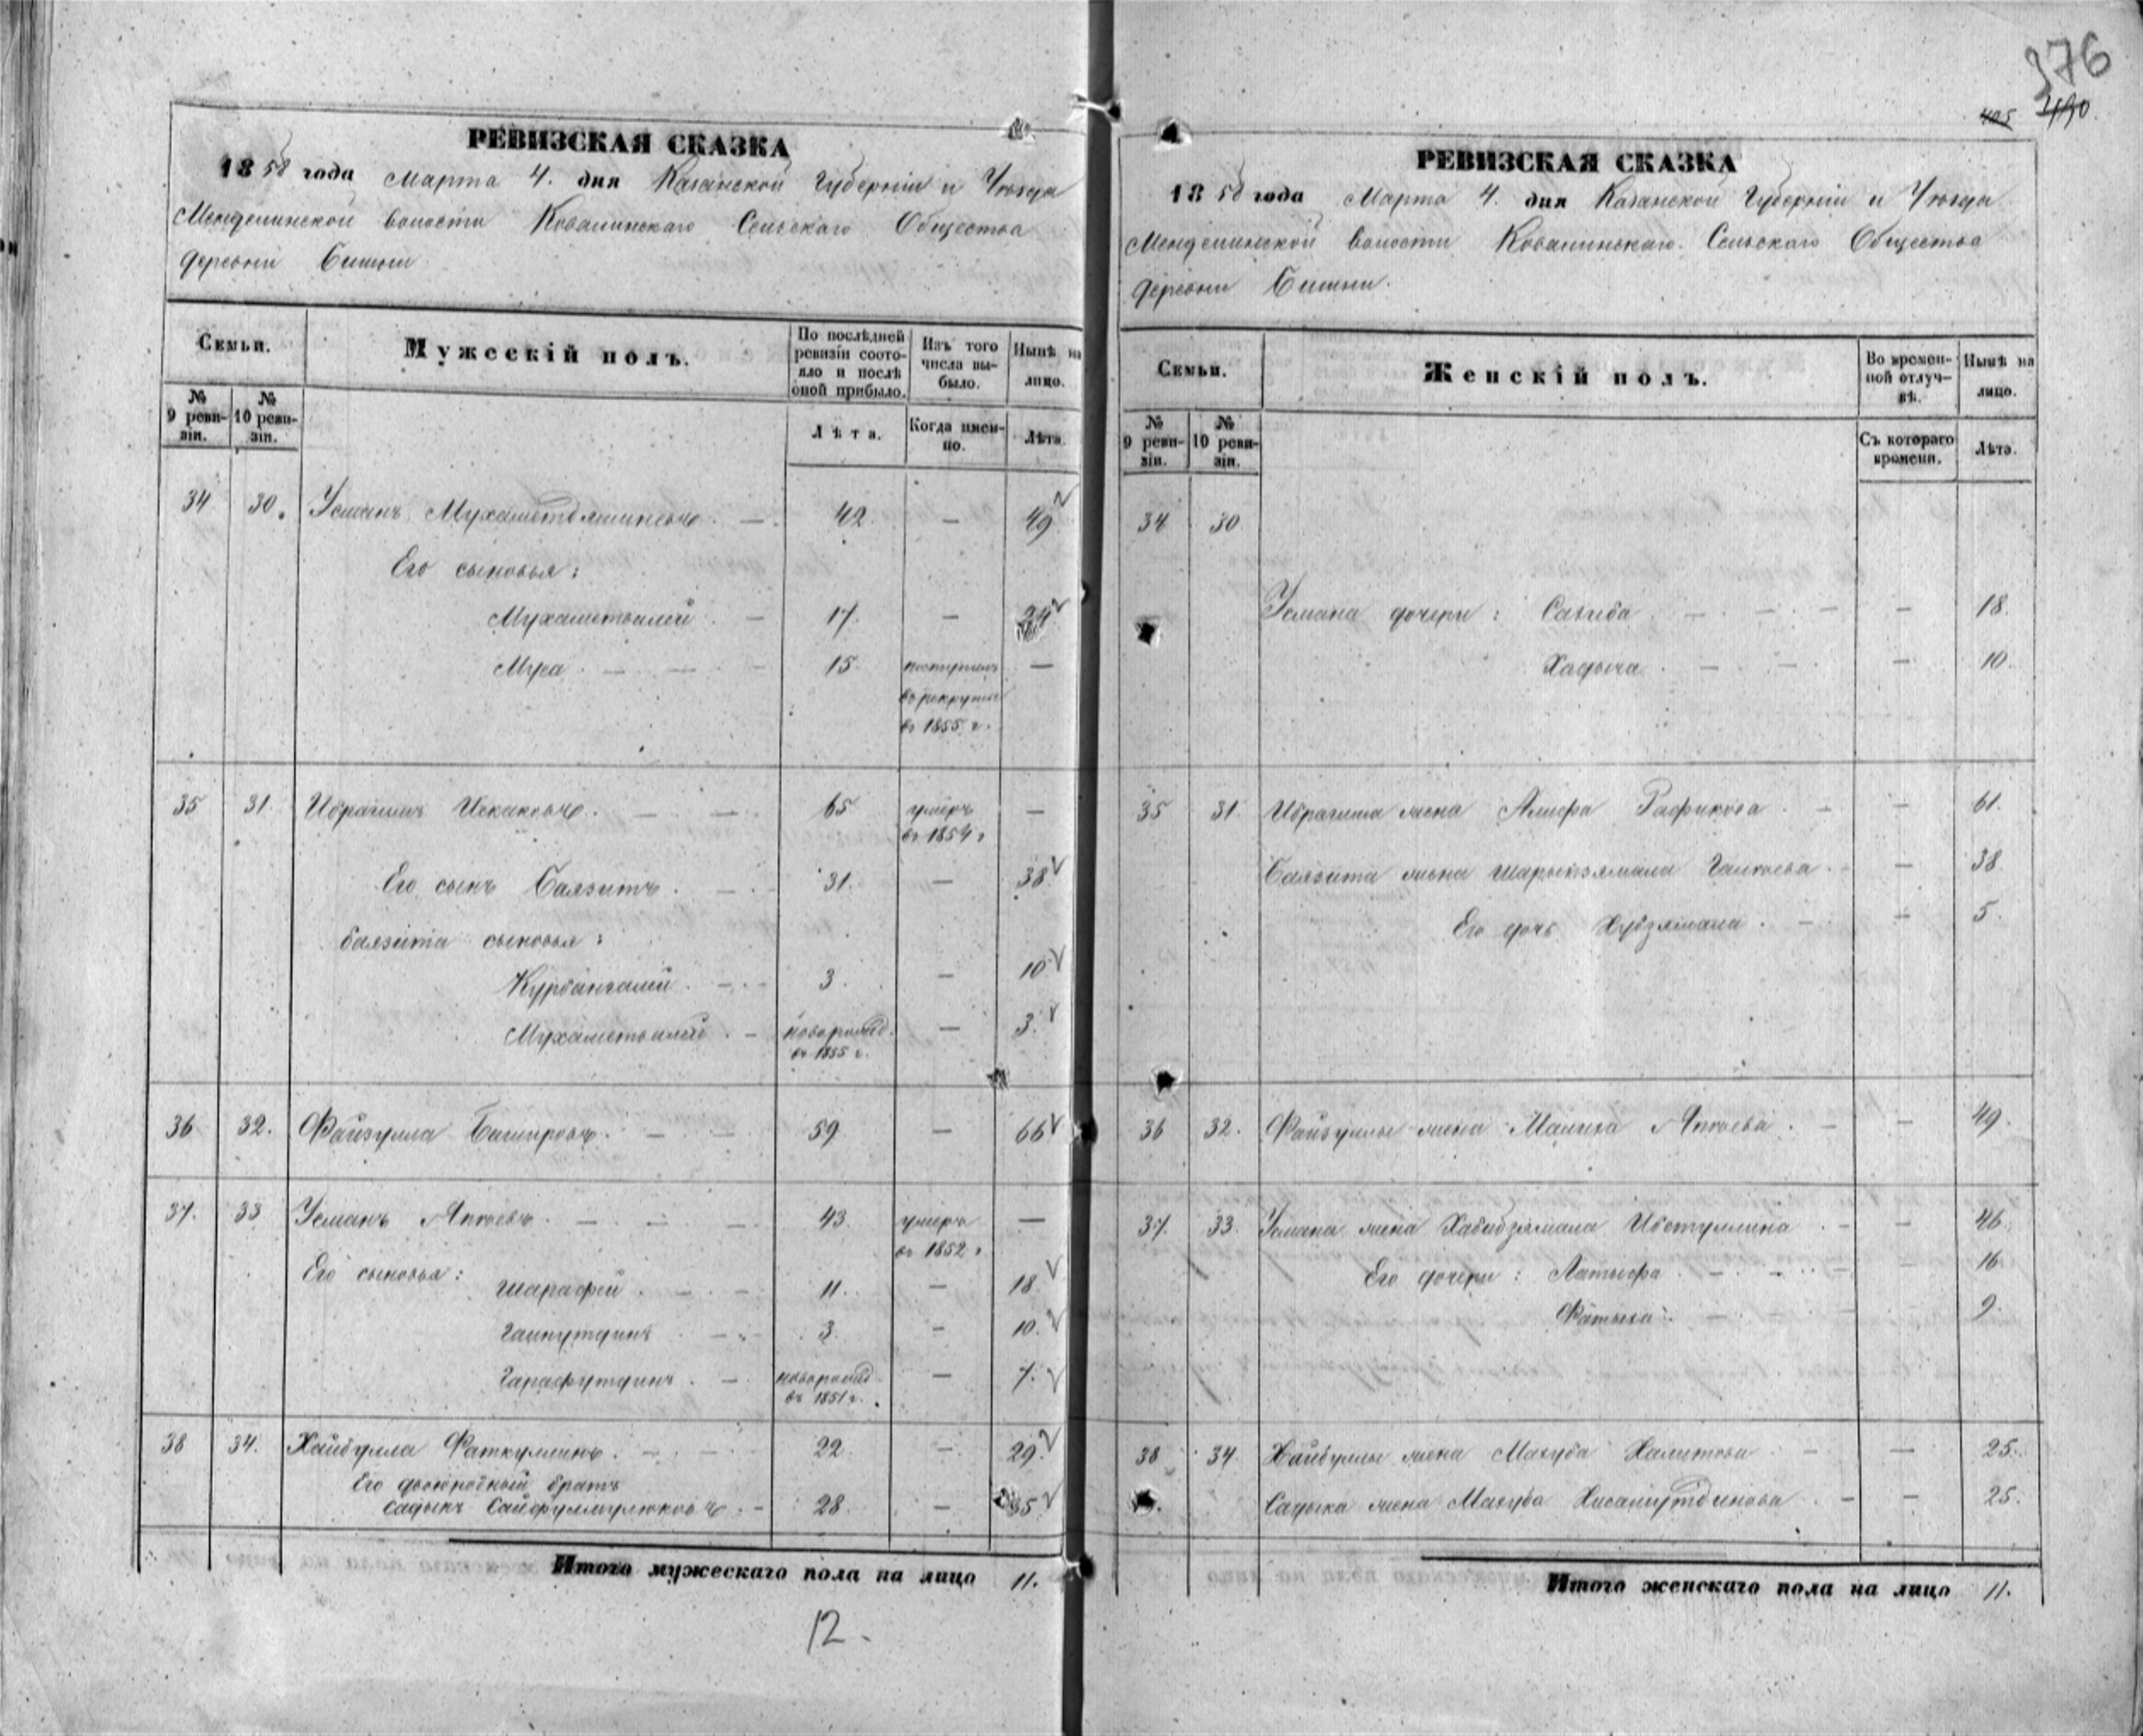 376
405 490.
РЕВИЗСКАЯ СКАЗКА
1858 года Марта 4. дня Казанской Губерніи и Уѣзда
Менделинской волости Ковалинскаго Сельскаго Общества
деревни Бишни
Семьи.
Мужескій полъ.
По послѣдней ревизіи состояло и послѣ оной прибыло.
Изъ того числа выбыло.
Нынѣ на лицо.
№ 9 ревизіи.
№ 10 ревизіи.
Лѣта.
Когда именно.
Лѣта.
34 30. Усманъ — 42. — 49
Его сыновья:
Мухаметвалей — 17. — 24
Муса — 15. поступилъ —
въ рекруты
въ 1855 г.
35 31. Ибрагимъ Искаковъ. — 65 умеръ —
въ 1854 г
Его сынъ Баязитъ. — 31. — 38
Баязита сыновья:
Курбангалей — 3. — 10
Мухаметвалей — новорожд. — 3.
въ 1855 г.
36 32. Файзулла Башировъ. — 59 — 66
37. 33 Усманъ Аптѣевъ — 43. умеръ —
въ 1852 г
Его сыновья: Шарафей — 11. — 18
Гайнутдинъ — 3. — 10.
Гарафутдинъ — новорожд. — 7.
въ 1851 г.
38 34. Хайбулла Фаткуллинъ. — 22. — 29.
Его двоюродный братъ
Садыкъ Сайфуллмулюковъ. — 28. — 35
Итого мужескаго пола на лицо 11.
12.
РЕВИЗСКАЯ СКАЗКА
1858 года Марта 4. дня Казанской Губерніи и Уѣзда
Менделинской волости Ковалинскаго Сельскаго Общества
деревни Бишни.
Семьи.
Женскій полъ.
Во временной отлучкѣ.
Нынѣ на лицо.
№ 9 ревизіи.
№ 10 ревизіи.
Съ котораго времени.
Лѣта.
34 30
Усмана дочери: Сагиба — — 18.
Хадыча — — 10.
35 31. Ибрагима жена Алифа Рафикова — — 61.
Баязита жена Шарыпзямала Галѣева — 38
Его дочь Хубзямала — — 5.
36 32. Файзуллы жена Малиха Аптѣева — — 49.
37. 33. Усмана жена Хабибзямала Ибетуллина — — 46.
Его дочери: Латыфа — — 16
Фатыха — 9.
38 34. Хайбуллы жена Магуба Халитова — — 25.
Садыка жена Магуба Хисамутдинова — — 25.
Итого женскаго пола на лицо 11.